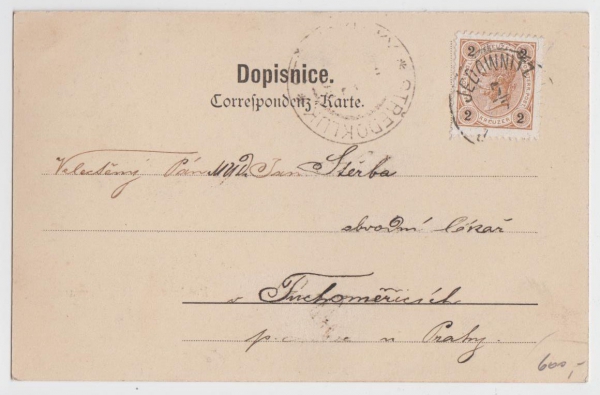 Dopisnice.
Correspondenz-Karte.
STŘEDOKLUKY
JEDOWNITZ
2 2
2 2
KREUZER
Velectěný Pán MUD. Jan Štěrba
obvodní lékař
v Tuchoměřicích
u Prahy.
600,-